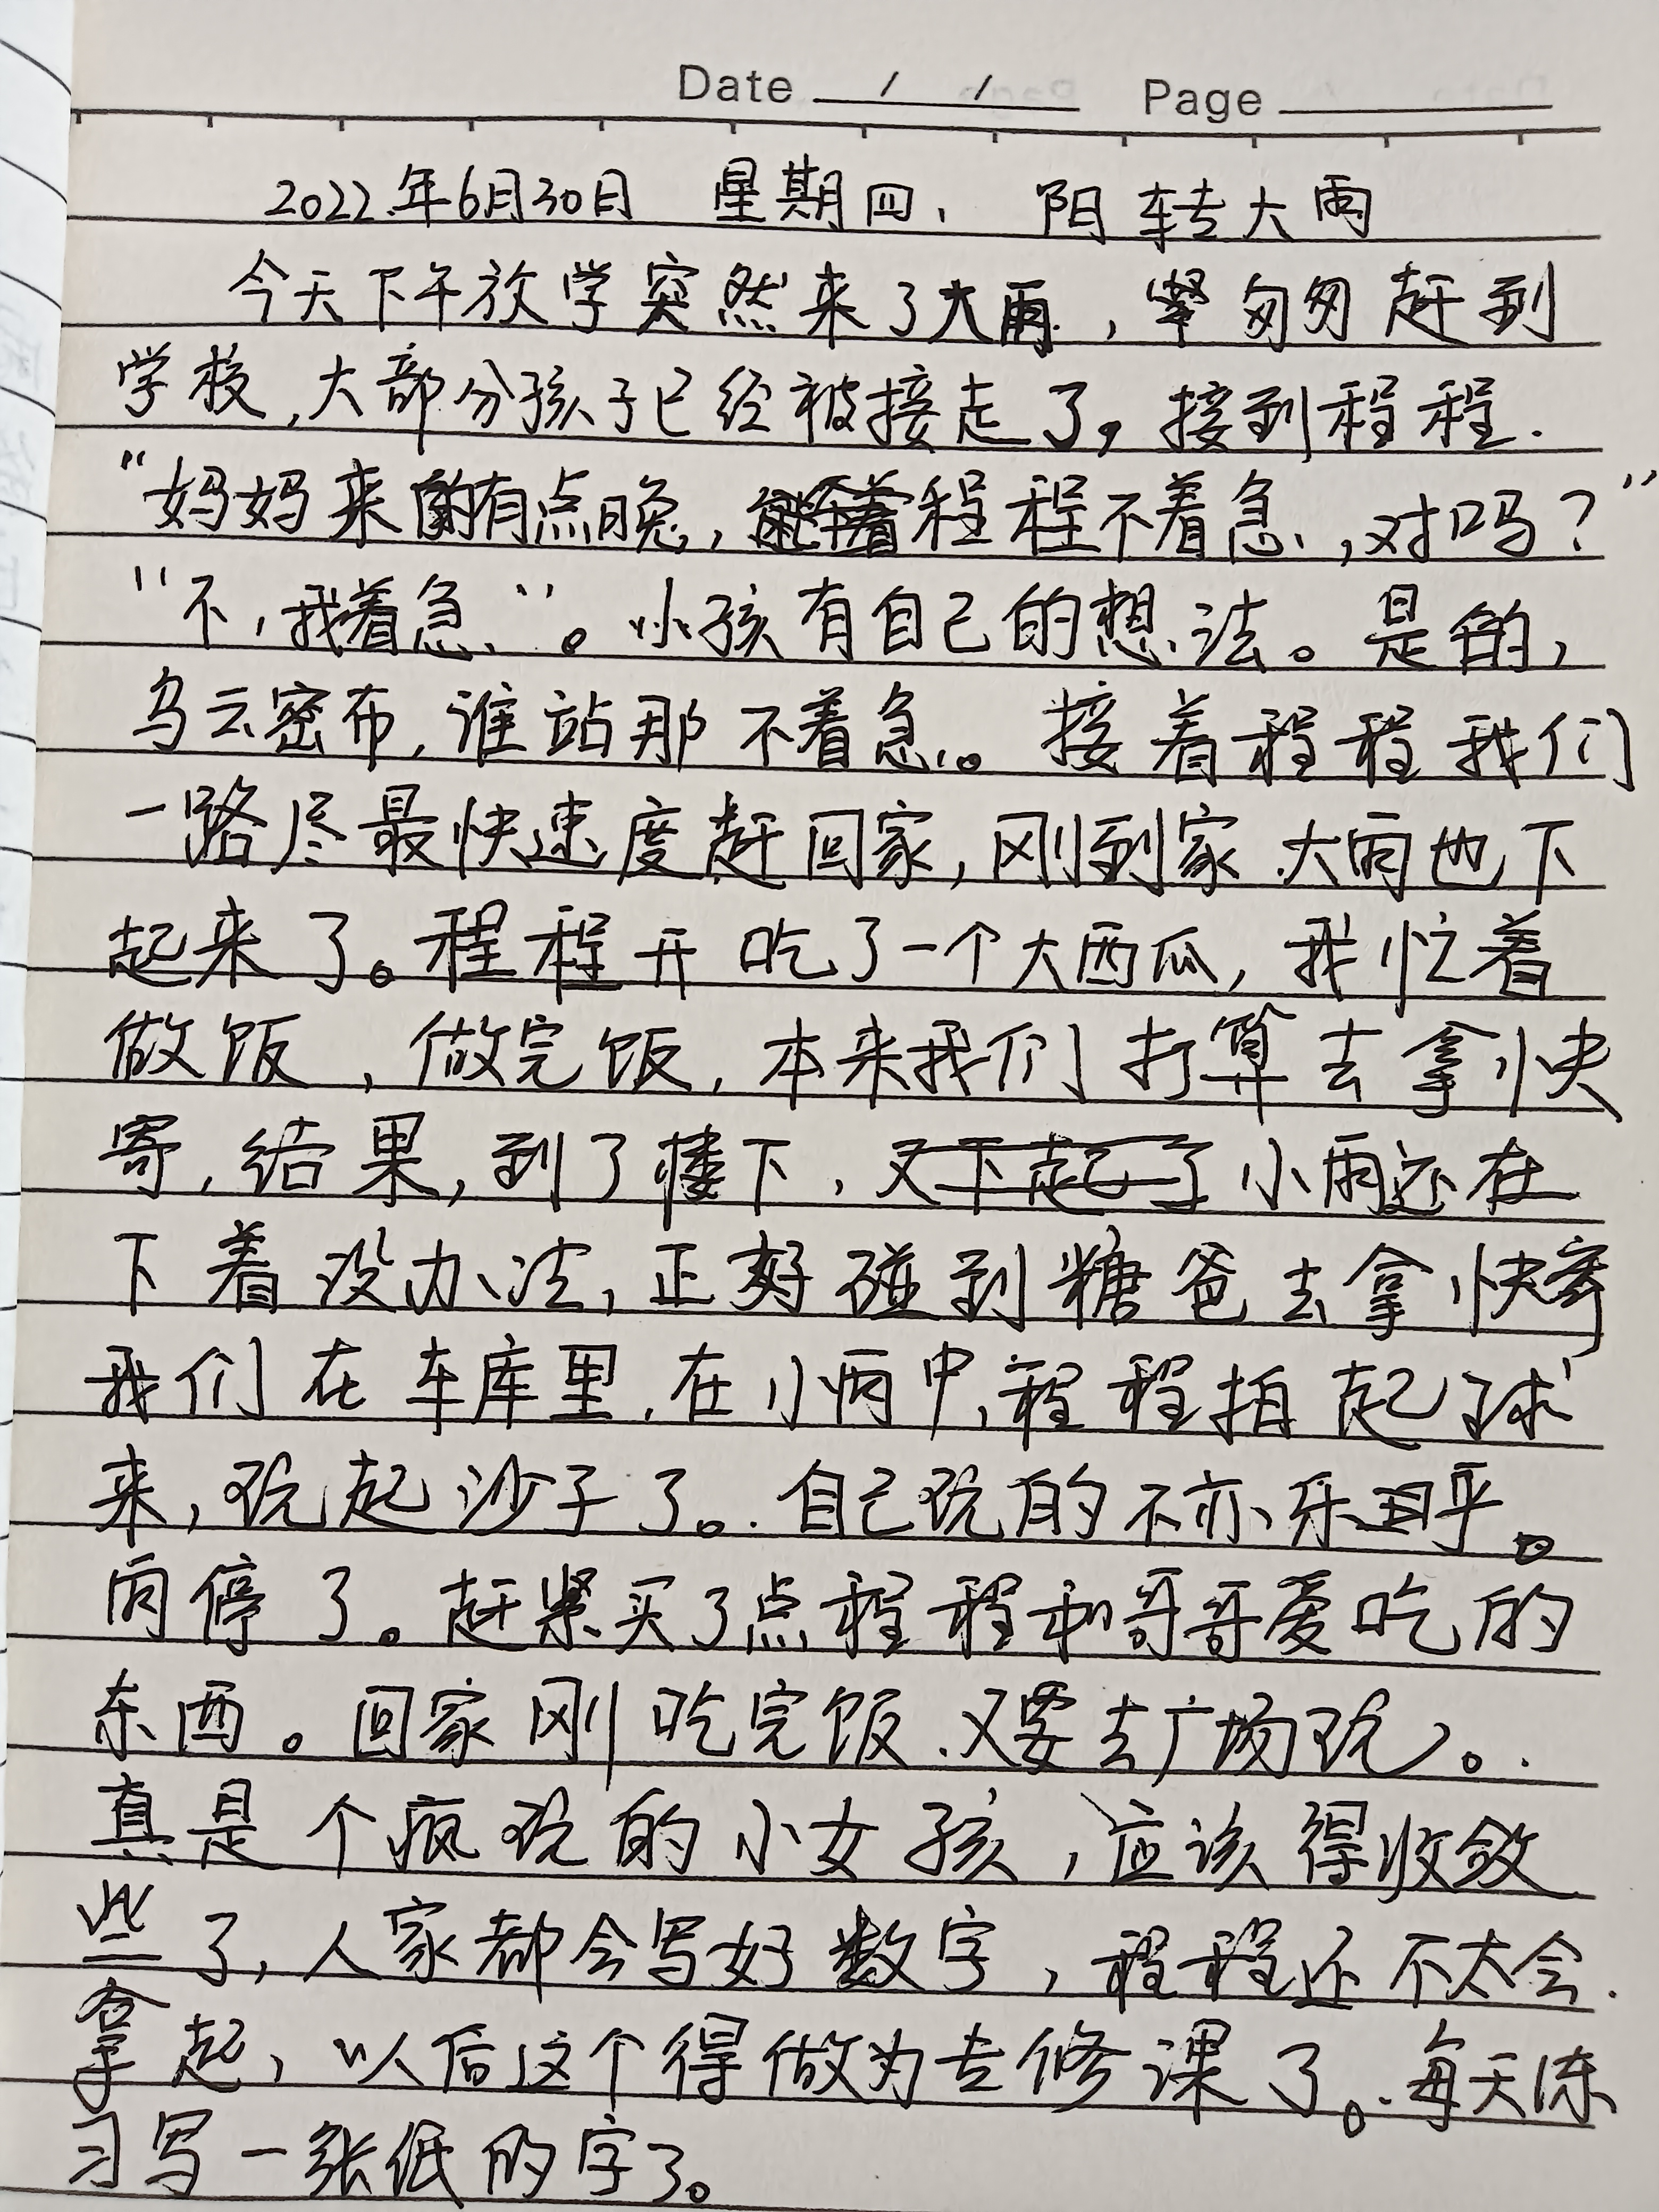 Date / / Page
2022年6月30日 星期四、 阳转大雨
今天下午放学突然来了大雨，匆匆赶到
学校,大部分孩子已经被接走了，接到程程.
“妈妈来的有点晚，程程不着急，对吗？”
“不，我着急”。小孩有自己的想法。是的，
乌云密布，谁站那不着急。接着程程我们
一路尽最快速度赶回家，刚到家.大雨也下
起来了。程程开吃了一个大西瓜，我忙着
做饭，做完饭，本来我们打算去拿快
寄，结果，到了楼下，又下起了小雨还在
下着没办法，正好碰到糖爸去拿快寄
我们在车库里.在小雨中,程程拍起球
来，玩起沙子了。自己玩的不亦乐乎。
雨停了。赶紧买了点程程和哥哥爱吃的
东西。回家刚吃完饭.又要去广场玩。
真是个疯玩的小女孩，应该得收敛
些了，人家都会写好数字，程程还不太会.
拿起，以后这个得做为专修课了。每天练
习写一张纸的字了。